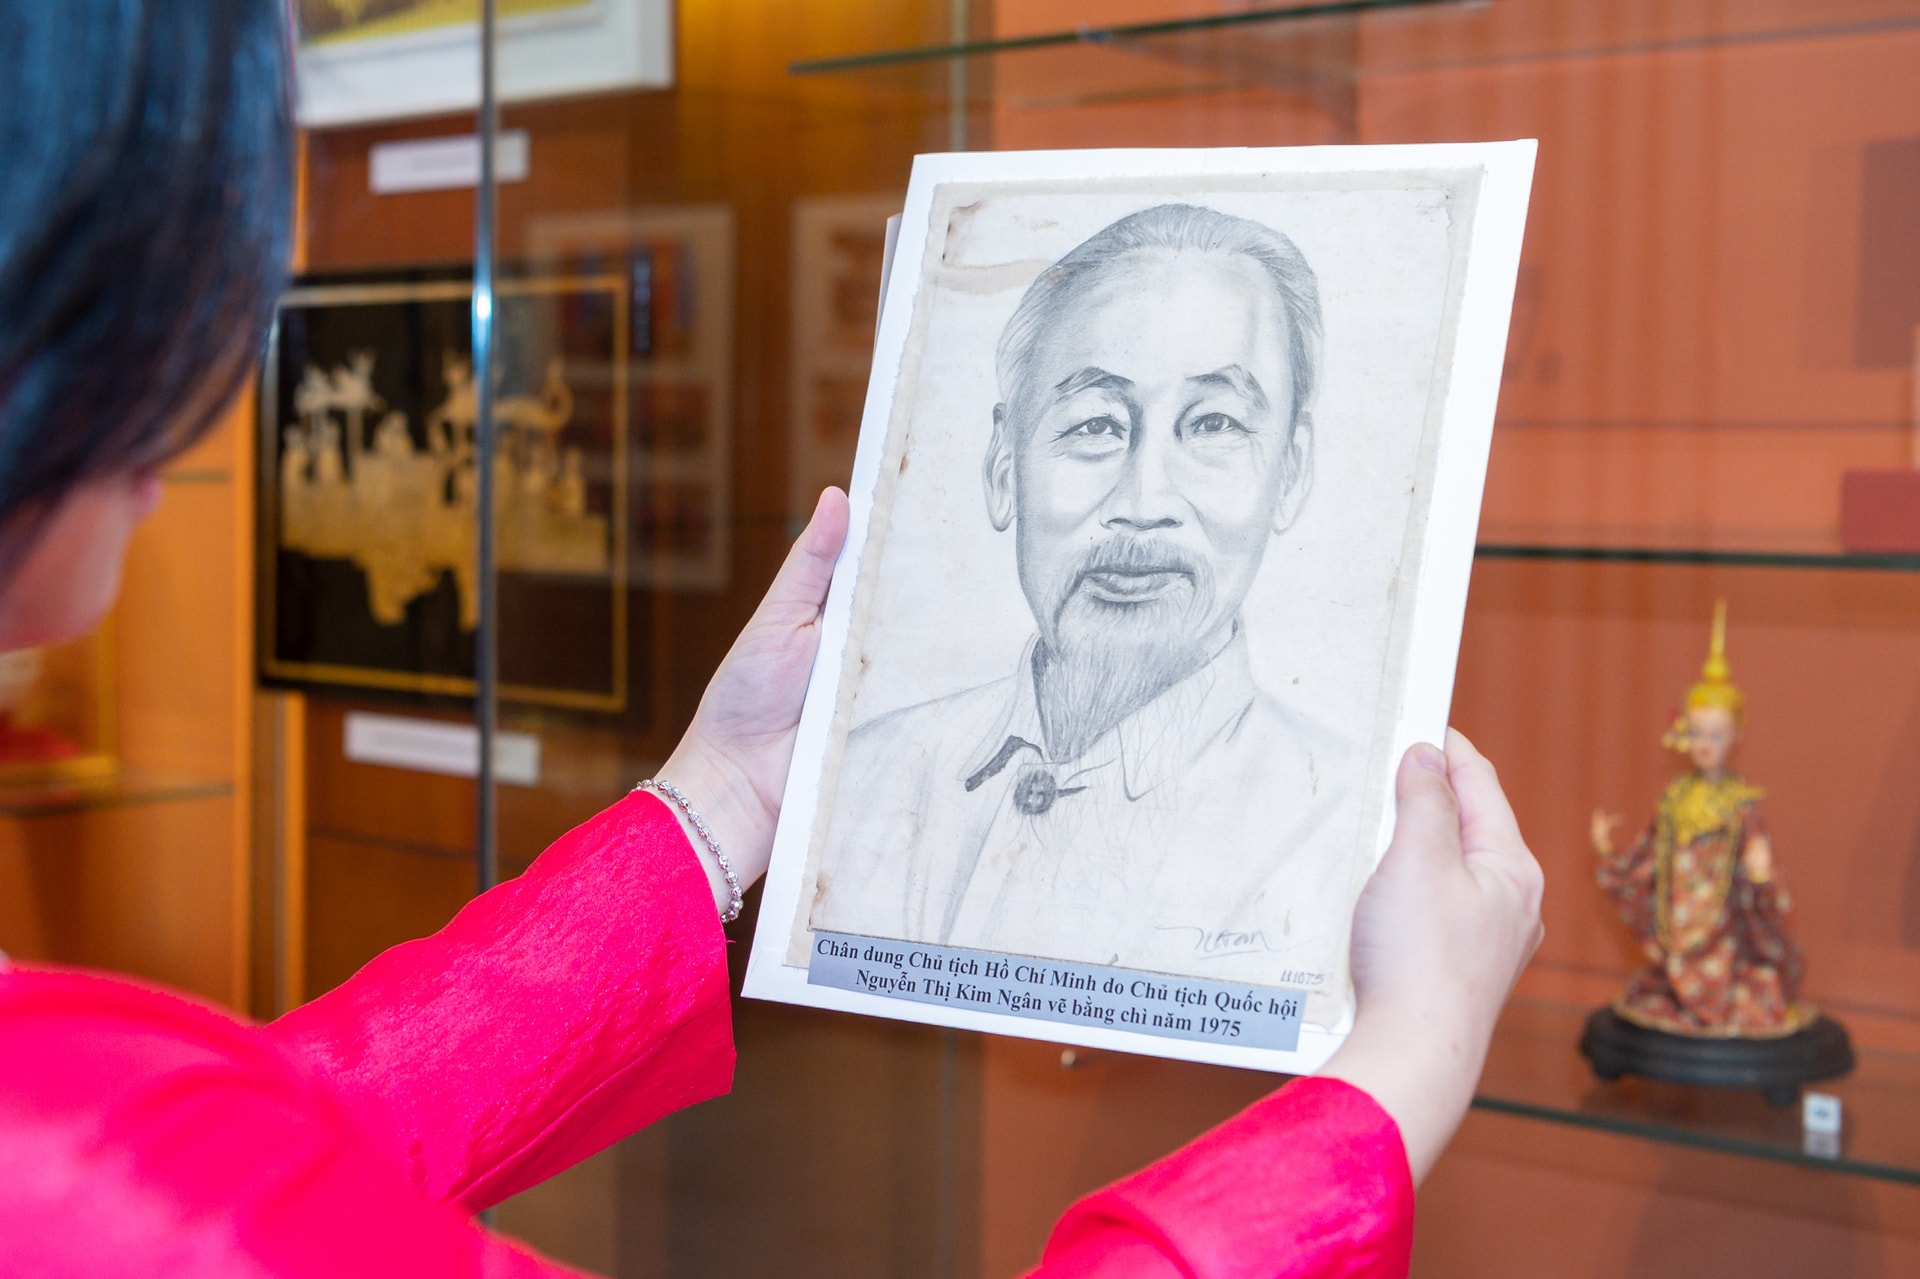 Chân dung Chủ tịch Hồ Chí Minh do Chủ tịch Quốc hội
Nguyễn Thị Kim Ngân vẽ bằng chì năm 1975